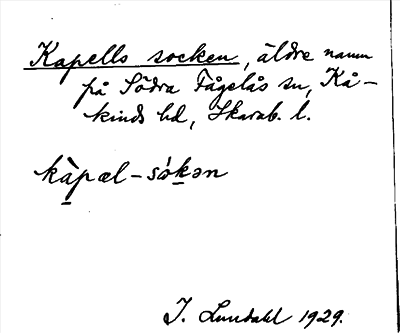 Kapells socken, äldre namn
på Södra Fågelås sn, Kå-
kinds hd, Skarab. l.
kàpæl-sókən
J. Lundahl 1929.